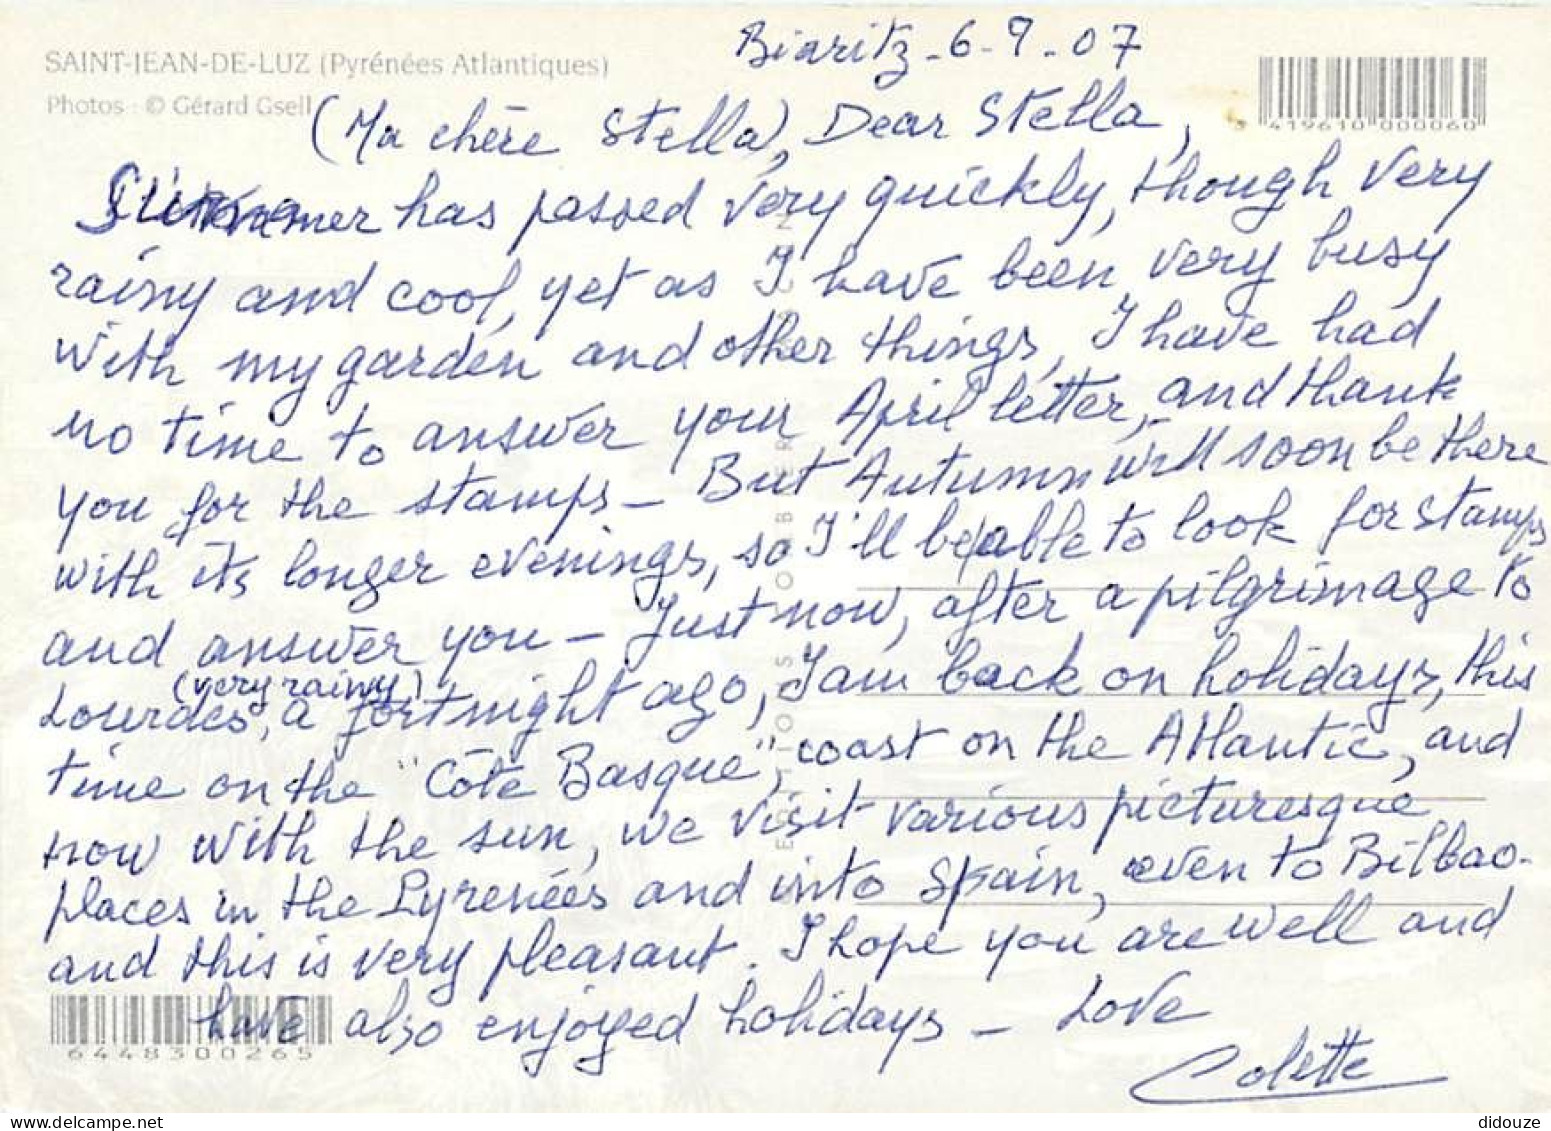 Biaritz - 6 - 9 - 07
SAINT-JEAN-DE-LUZ (Pyrénées Atlantiques)
Photos : © Gérard Gsell
3 419610 000060
(Ma chère Stella), Dear Stella,
Summer has passed very quickly, though very
rainy and cool, yet as I have been very busy
with my garden and other things, I have had
no time to answer your April letter, and thank
you for the stamps - But Autumn will soon be there
with its longer evenings, so I'll be able to look for stamps
and answer you - Just now, after a pilgrimage to
(very rainy)
Lourdes, a fortnight ago, I am back on holidays, this
time on the "Côte Basque", coast on the Atlantic, and
now with the sun, we visit various picturesque
places in the Pyrenées and into Spain, even to Bilbao -
and this is very pleasant. I hope you are well and
have also enjoyed holidays - Love
Colette
6448300265
didouze